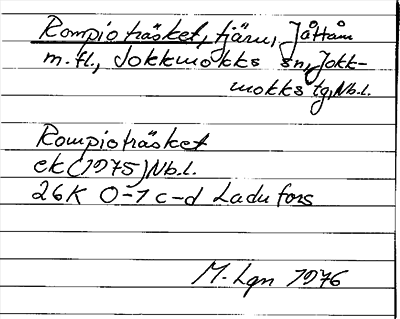 Rompioträsket, tjärn, Jåttåm
m.fl., Jokkmokks sn, Jokk-
mokks tg, Nb.l.
Rompioträsket
ek (1975) Nb.l.
26K 0-1 c-d Ladufors
M. Lgn 1976